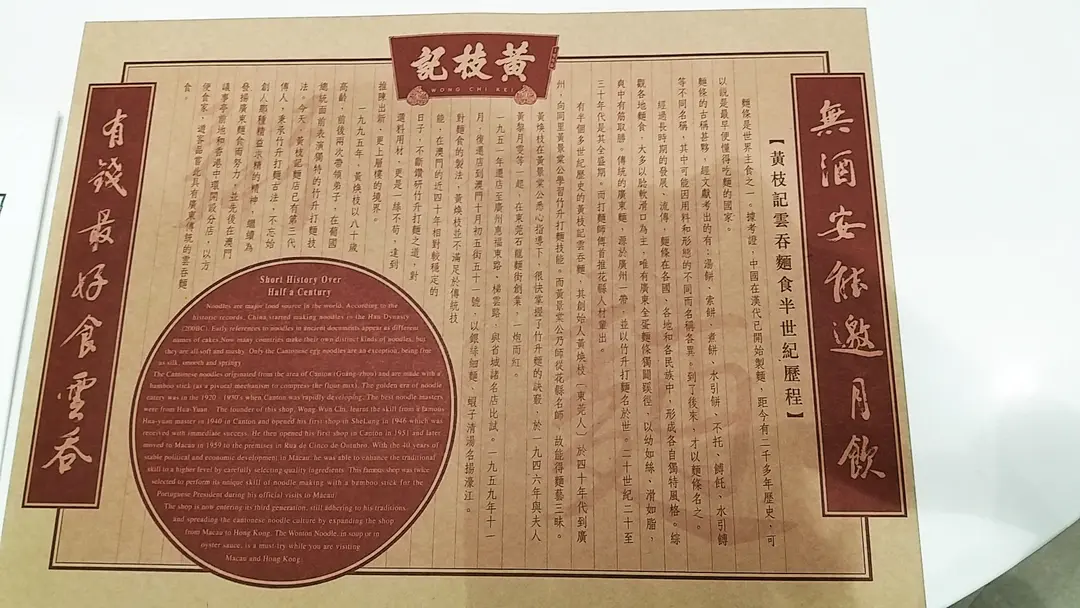 黃枝記
WONG CHI KEI
無酒安能邀月飲
【黃枝記雲吞麵食半世紀歷程】
麵條是世界主食之一。據考證,中國在漢代已開始製麵,距今有二千多年歷史,可
以說是最早便懂得吃麵的國家。
麵條的古稱甚夥,經文獻考出的有:湯餅、索餅、煮餅、水引餅、不托、餺飥、水引餺
等不同名稱,其中可能因用料和形態的不同而名稱各異。到了後來,才以麵條名之。
經過長時期的發展、流傳,麵條在各國、各地和各民族中,形成各自獨特風格。綜
觀各地麵食,大多以腍軟滑口為主,唯有廣東全蛋麵條獨闢蹊徑,以幼如絲、滑如脂,
爽中有筋取勝。傳統的廣東麵,源於廣州一帶,並以竹升打麵名於世。二十世紀二十至
三十年代是其全盛期。而打麵師傅首推花縣人村輩出。
有半個多世紀歷史的黃枝記雲吞麵,其創始人黃煥枝(東莞人)於四十年代到廣
州,向同里黃景棠公學習竹升打麵技能。而黃景棠公乃師從花縣名師,故能得麵藝三昧。
黃煥枝在黃景棠公悉心指導下,很快掌握了竹升麵的訣竅,於一九四六年與夫人
黃黎月雯等一起,在東莞石龍麵街創業,一炮而紅。
一九五一年遷店至廣州惠福東路、梯雲路,與省城諸名店比試。一九五九年十一
月,復遷店到澳門十月初五街五十一號,以銀絲細麵、蝦子清湯名揚濠江。
對麵食的製法,黃煥枝並不滿足於傳統技
能,在澳門的近四十年相對較穩定的
日子,不斷鑽研竹升打麵之道,對
選料用材,更是一絲不苟,達到
推陳出新、更上層樓的境界。
一九九五年,黃煥枝以八十歲
高齡,前後兩次帶領弟子,在葡國
總統面前表演獨特的竹升打麵技
法。今天,黃枝記麵店已有第三代
傳人,秉承竹升打麵古法,不忘始
創人那種精益求精的精神,繼續為
發揚廣東麵食而努力,並先後在澳門
議事亭前地和香港中環開設分店,以方
便食家、遊客品嘗此具有廣東傳統的雲吞麵
食。
有錢最好食雲吞
Short History Over
Half a Century
Noodles are major food source in the world. According to the
historic records, China started making noodles in the Han Dynasty
(200BC). Early references to noodles in ancient documents appear as different
names of cakes. Now many countries make their own distinct kinds of noodles, but
they are all soft and mushy. Only the Cantonese egg noodles are an exception, being fine
as silk, smooth and springy.
The Cantonese noodles originated from the area of Canton (Guang-zhou) and are made with a
bamboo stick (as a pivotal mechanism to compress the flour mix). The golden era of noodle
eatery was in the 1920 - 1930's when Canton was rapidly developing. The best noodle masters
were from Hua-Yuan. The founder of this shop, Wong Wun Chi, learnt the skill from a famous
Hua-yuan master in 1940 in Canton and opened his first shop in SheLung in 1946 which was
received with immediate success. He then opened his first shop in Canton in 1951 and later
moved to Macau in 1959 to the premises in Rua de Cinco de Outubro. With the 40 years of
stable political and economic development in Macau, he was able to enhance the traditional
skill to a higher level by carefully selecting quality ingredients. This famous shop was twice
selected to perform its unique skill of noodle making with a bamboo stick for the
Portuguese President during his official visits to Macau.
The shop is now entering its third generation, still adhering to his traditions,
and spreading the cantonese noodle culture by expanding the shop
from Macau to Hong Kong. The Wonton Noodle, in soup or in
oyster sauce, is a must-try while you are visiting
Macau and Hong Kong.